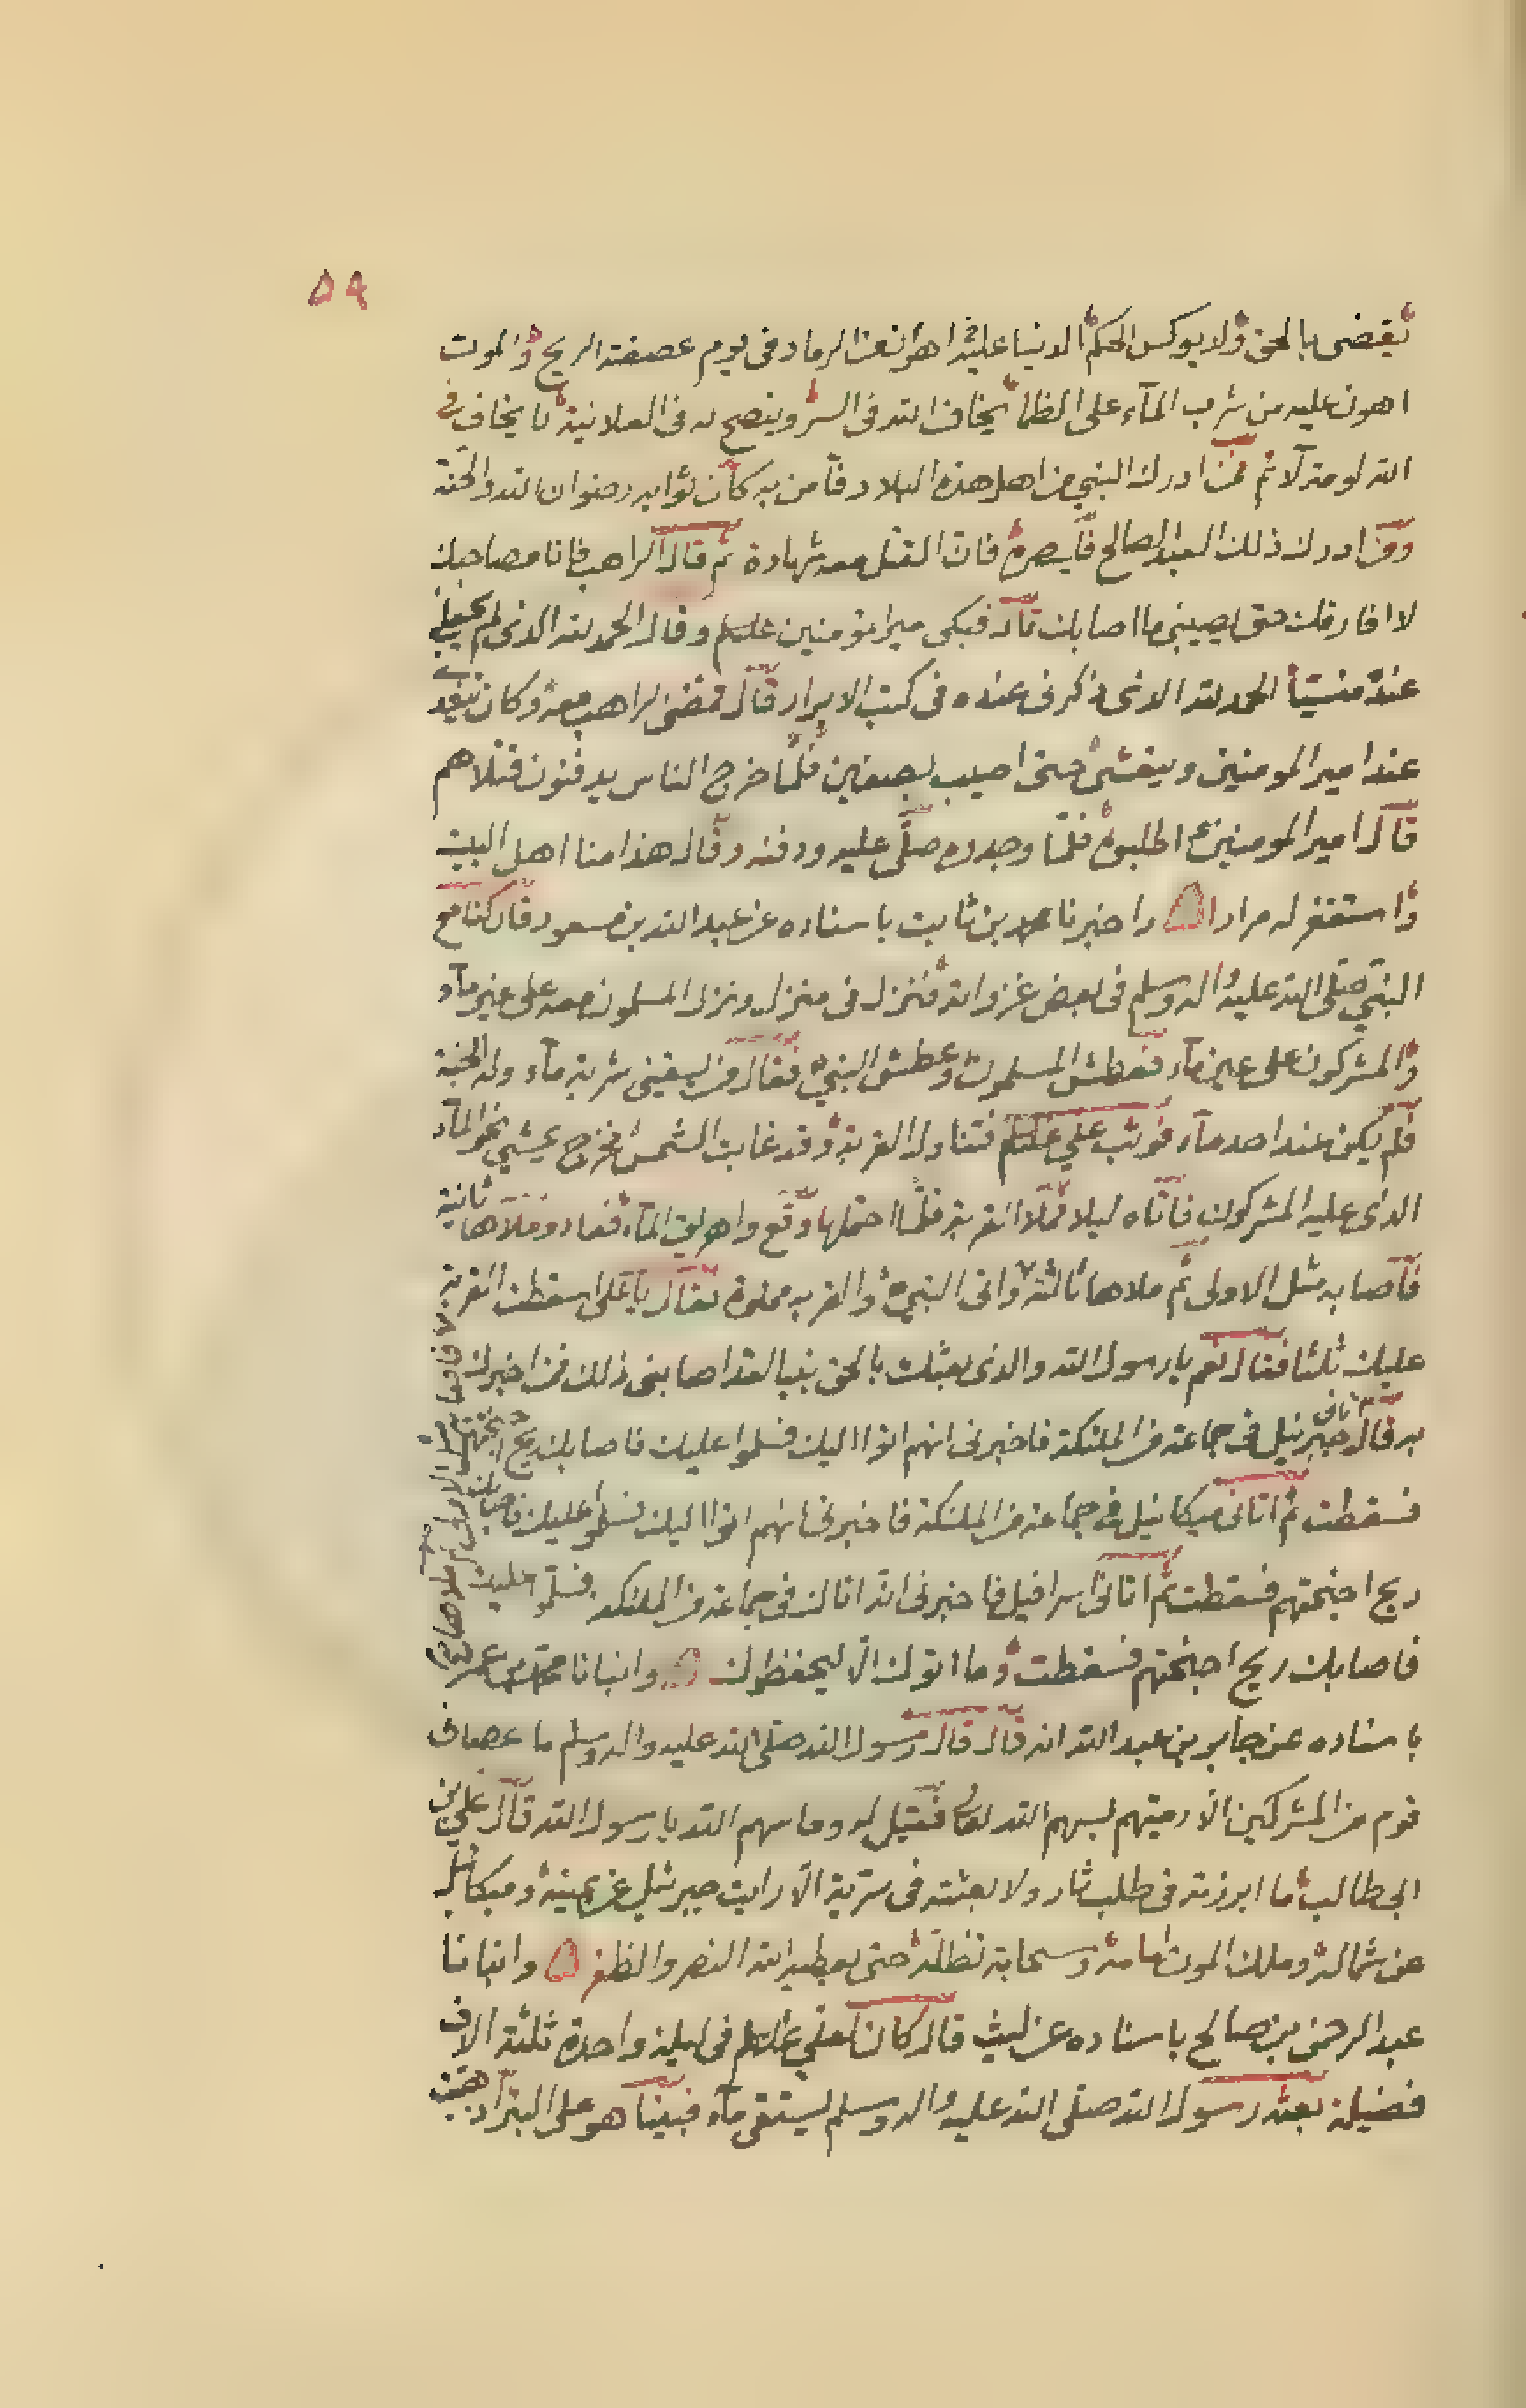 ٥٩
يقضى بالحق ولا يوكس الحكم الدنيا عليه اهون من الرماد فى يوم عصفت الريح والموت
اهون عليه من شرب المآء على الظمأ يخاف الله فى السر وينصح له فى العلانية لا يخاف فى
الله لومة لآئم فمن ادرك النبي من اهل هذه البلاد فآمن به كان ثوابه رضوان الله والجنة
ومن ادرك ذلك العبد الصالح فلينصره فان القتل معه شهادة ثم قال الراهب فانا مصاحبك
لا افارقك حتى يصيبنى ما اصابك قال فبكى امير المؤمنين عليه السلم وقال الحمد لله الذى لم يجعلنى
عنده منسيا الحمد لله الذى ذكرنى عنده فى كتب الابرار قال فمضى الراهب معه وكان يتغدى
عند امير المومنين ويتعشى حتى اصيب بصفين فلما خرج الناس يدفنون قتلاهم
قال امير المومنين ع اطلبوه فلما وجدوه صلى عليه ودفنه وقال هذا منا اهل البيت
واستغفر له مرارا ۝ واخبرنا محمد بن ثابت باسناده عن عبد الله بن مسعود قال كنا مع
النبي صلى الله عليه واله وسلم فى بعض غزواته فنزل فى منزل ونزل المسلمون معه على غير مآء
والمشركون على عين مآء فعطش المسلمون وعطش النبي فقال من يسقينى شربة مآء وله الجنة
فلم يكن عند احد مآء فوثب علي عليه السلم فتناول القربة وقد غابت الشمس فخرج يمشي نحو المآء
الذى عليه المشركون فاتاه ليلا فملا القربة فلما احتملها وقع واهريق المآء فعاد وملاها ثانية
فآصابه مثل الاولى ثم ملاها ثالثة واتى النبي والقربه مملوة فقال يا على اسقطت القربة
عليك ثلثا فقال نعم يا رسول الله والذى بعثك بالحق نبيا لقد اصابنى ذلك فمن اخبرك
به قال اتانى جبرئيل فى جماعة من الملئكة فاخبرنى انهم اتوا اليك فسلموا عليك فاصابك ريح اجنحتهم
فسقطت ثم اتانى ميكائيل فى جماعة من الملئكة فاخبرنى انهم اتوا اليك فسلموا عليك فاصابك
ريح اجنحتهم فسقطت ثم اتانى اسرافيل فاخبرنى انه اتاك فى جماعة من الملئكه فسلموا عليك
فاصابك ريح اجنحتهم فسقطت وما اتوك الا ليحفظوك ۝ وانبانا محمد بن عمر
باسناده عن جابر بن عبد الله انه قال قال رسول الله صلى الله عليه واله وسلم ما عصانى
قوم من المشركين الا رميتهم بسهم الله تعالى فقيل له وما سهم الله يا رسول الله قال علي بن
ابى طالب ما ابرزته فى طلب ثار ولا بعثته فى سرية الا رايت جبرئيل عن يمينه وميكائيل
عن شماله وملك الموت امامه وسحابة تظله حتى يعطيه الله النصر والظفر ۝ وانبانا
عبد الرحمن بن صالح باسناده عن ليث قال كان لعلي عليه السلم فى ليلة واحدة ثلثة الاف
فضيلة بعثه رسول الله صلى الله عليه واله وسلم ليستقى مآء فبينا هو على البئر اذ هبت